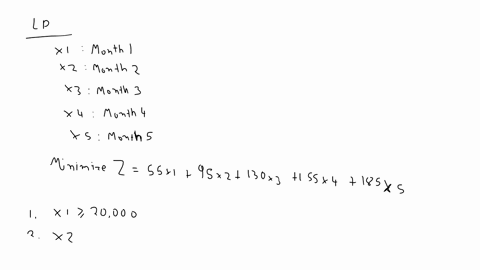 LP
x1 : Month 1
x2 : Month 2
x3 : Month 3
x4 : Month 4
x5 : Month 5
Minimize Z = 55x1 + 95x2 + 130x3 + 155x4 + 185x5
1. x1 ≥ 20,000
2. x2